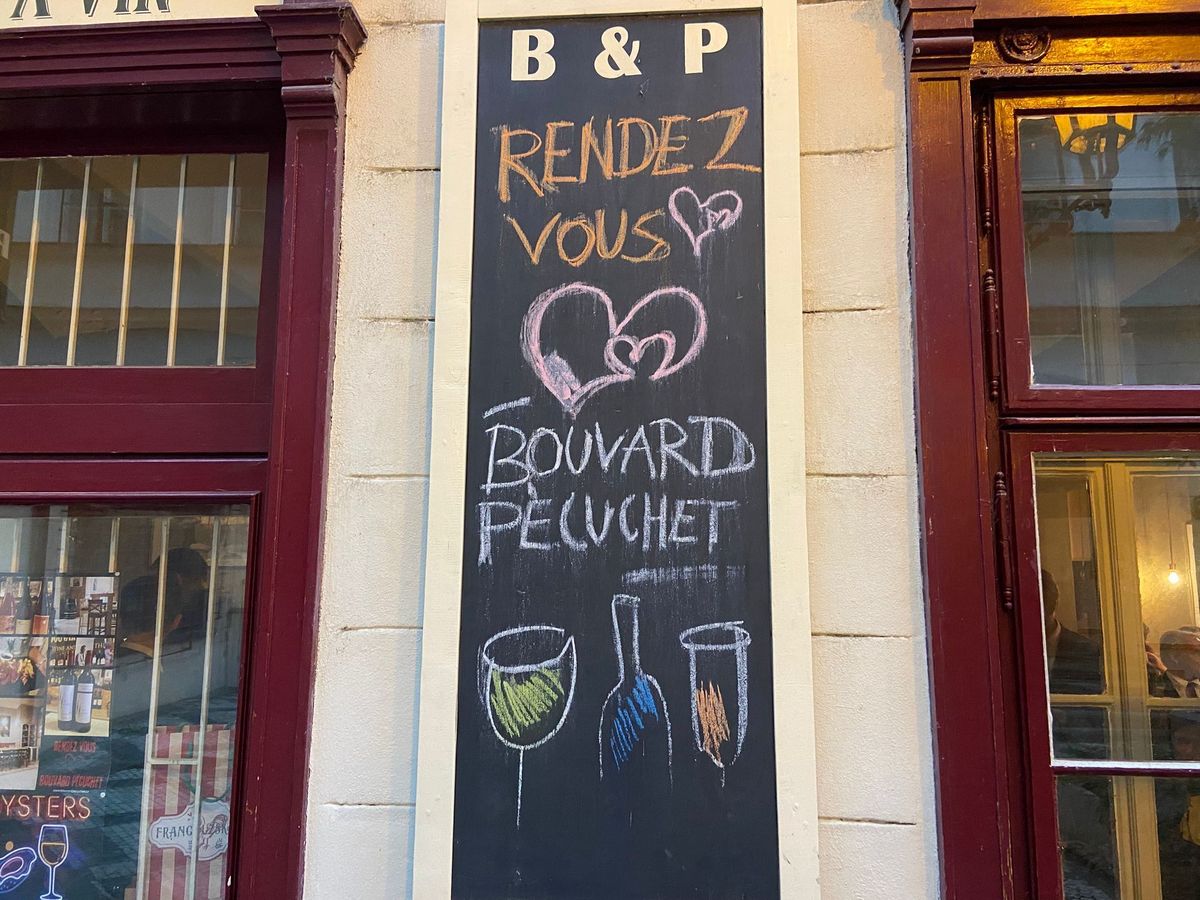 À VIN
B & P
RENDEZ
VOUS
BOUVARD
PÈCUCHET
RENDEZ VOUS
BOUVARD PÉCUCHET
OYSTERS